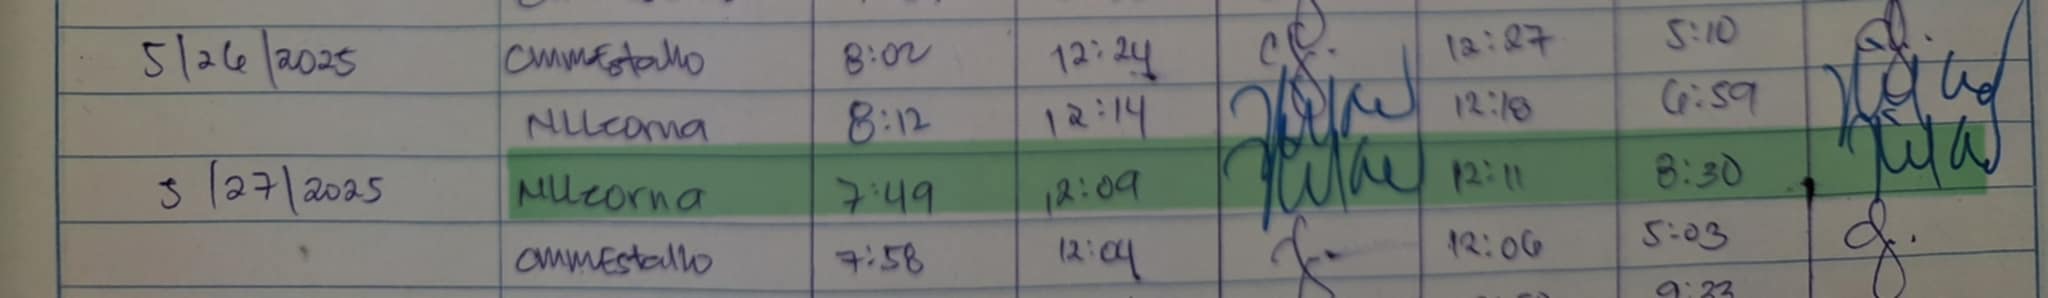 5/26/2025 CMMEstallo 8:02 12:24 12:27 5:10
NLLcorna 8:12 12:14 12:18 6:59
5/27/2025 NLLcorna 7:49 12:09 12:11 8:30
CMMEstallo 7:58 12:04 12:06 5:03
9:33